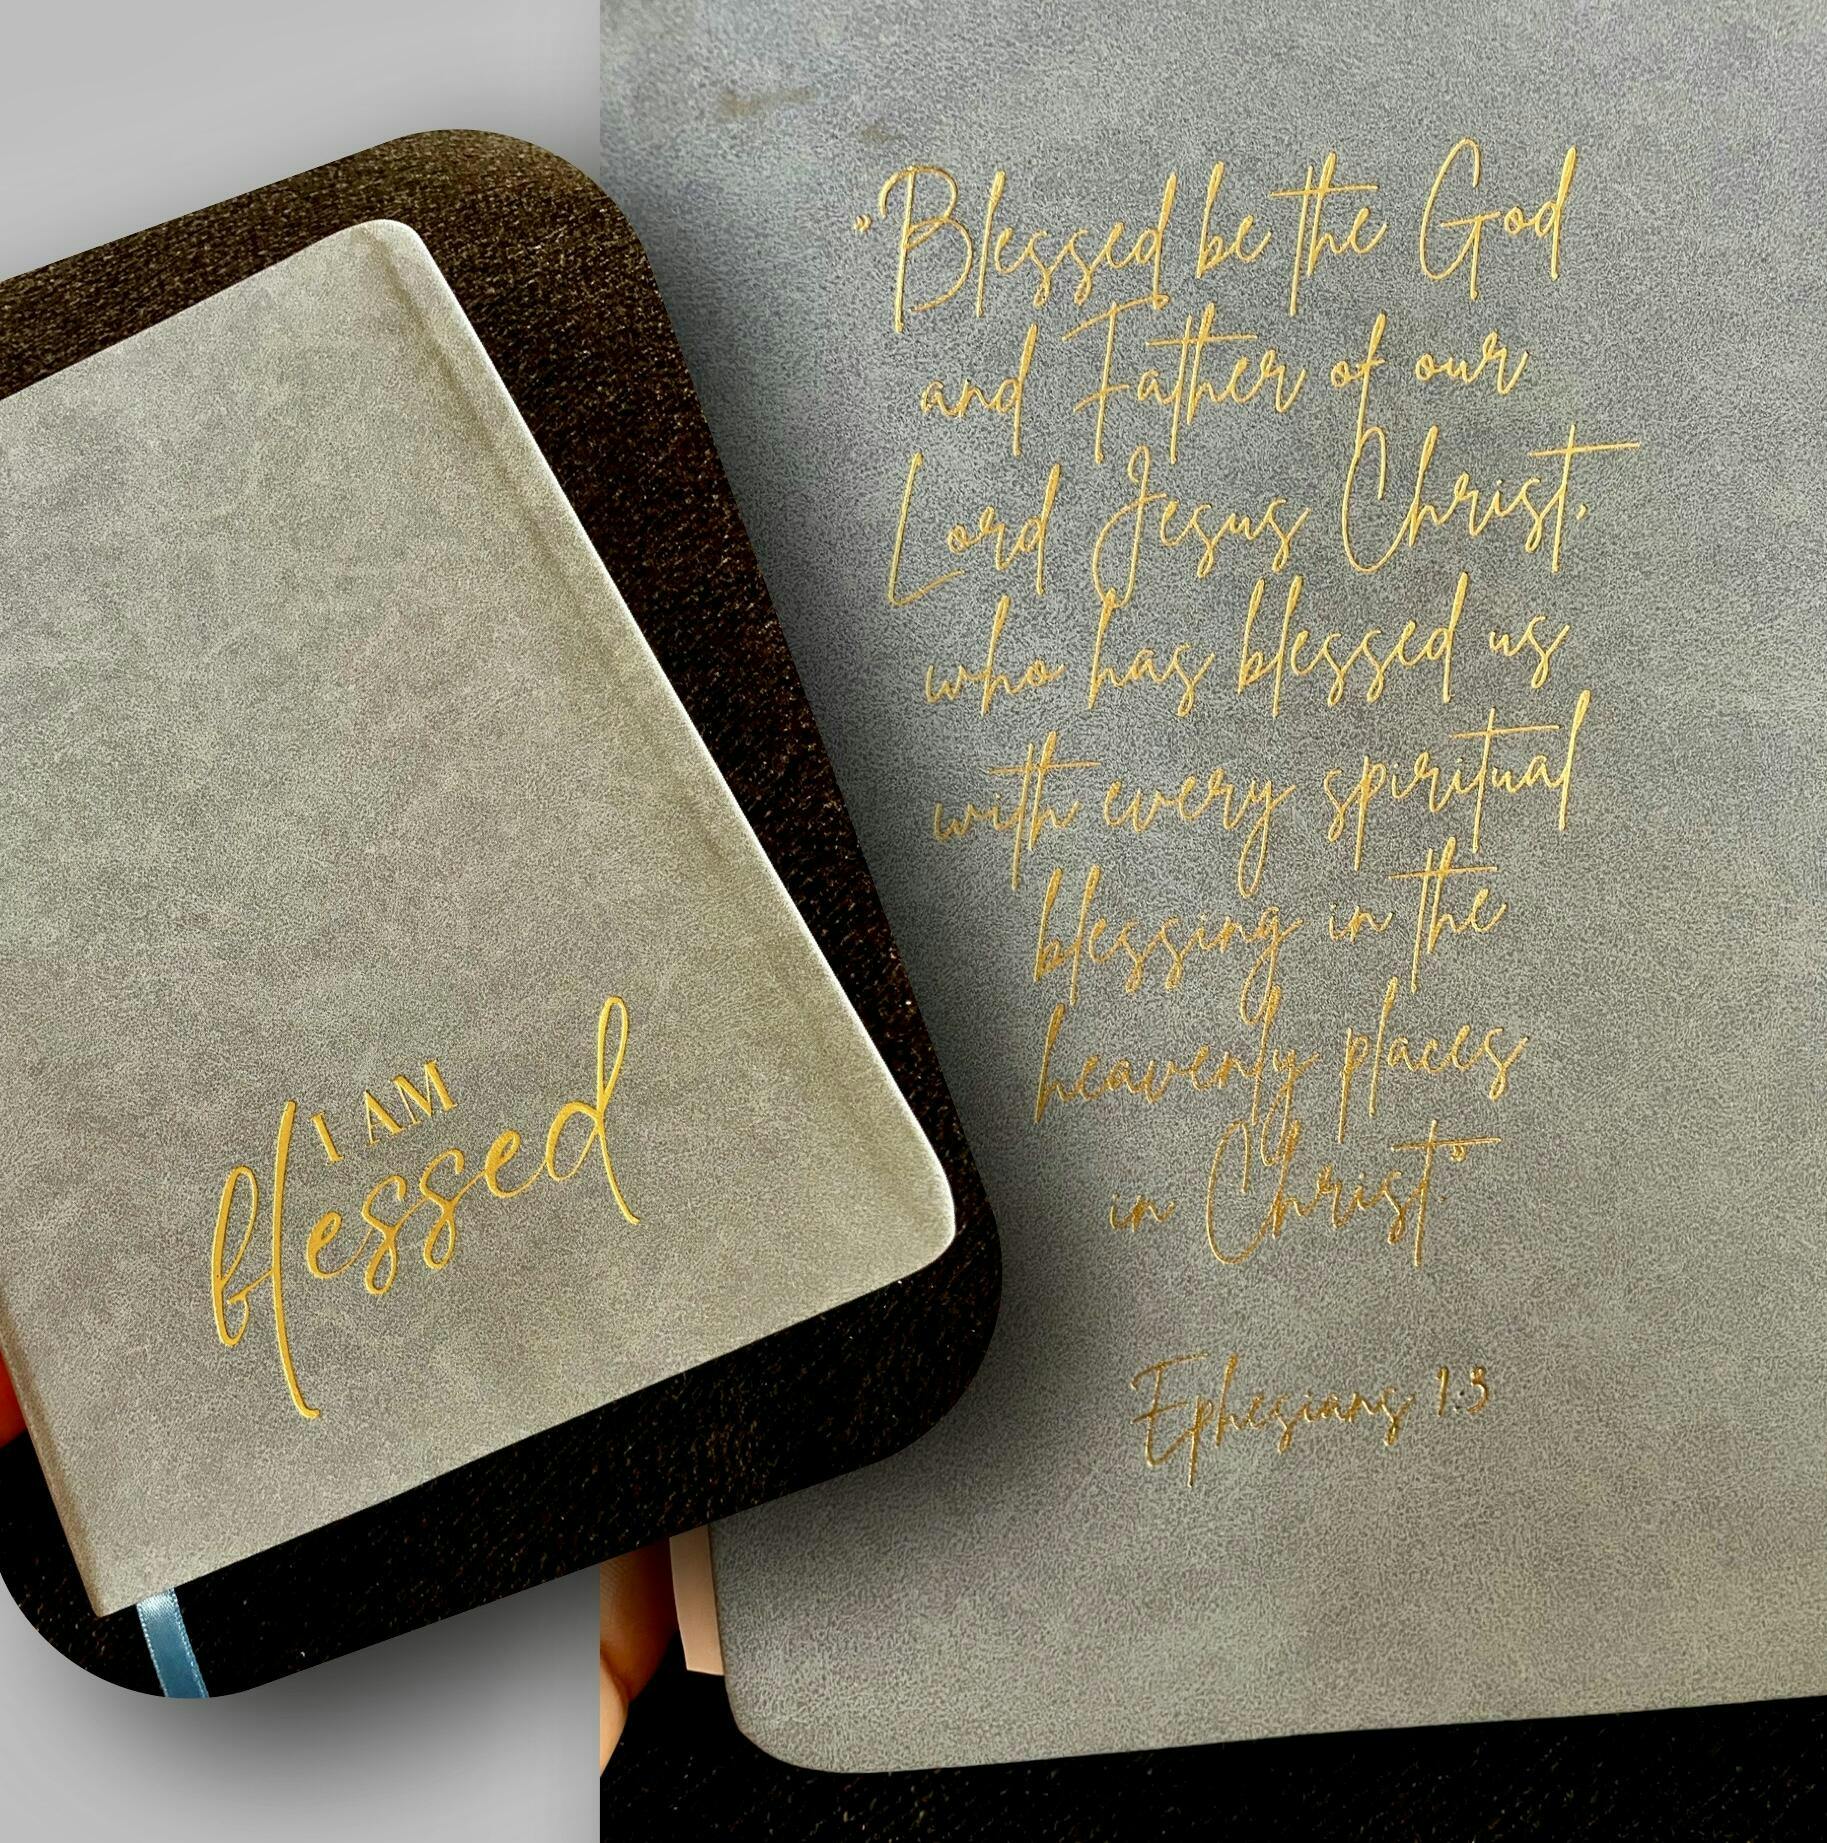 I AM
blessed
"Blessed be the God
and Father of our
Lord Jesus Christ,
who has blessed us
with every spiritual
blessing in the
heavenly places
in Christ."
Ephesians 1:3